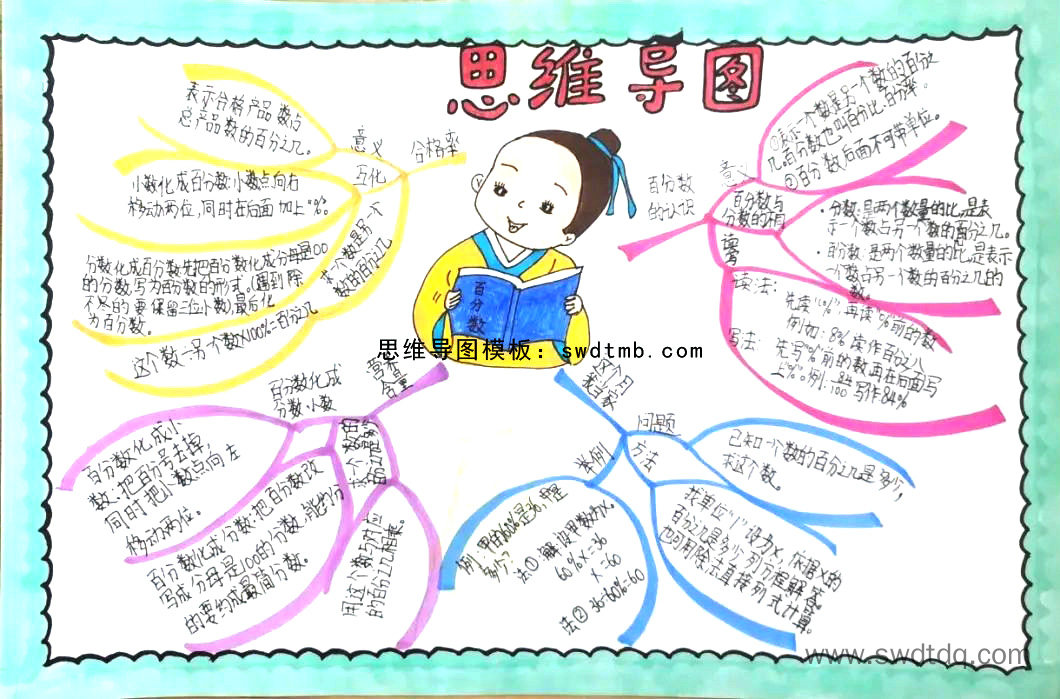 思维导图
百分数的认识
意义
①表示一个数是另一个数的百分之
几。百分数也叫百分比、百分率。
②百分数后面不可带单位。
百分数与
分数的不同
·分数:是两个数量的比,是表
示一个数占另一个数的百分之几。
·百分数:是两个数量的比,是表示
一个数占另一个数的百分之几的
数。
读写
读法:
先读"%",再读"%"前的数
例如:8%读作百分之八
写法:
先写%前的数再在后面写
上"%"。例:
写作84%
合格率
意义
表示合格产品数占
总产品数的百分之几。
互化
小数化成百分数:小数点向右
移动两位,同时在后面加上"%"。
分数化成百分数:先把百分数化成分母是100
的分数,写为百分数的形式。(遇到除
不尽的要保留三位小数),最后化
为百分数。
求一个数是另一个
数的百分之几
这个数÷另一个数×100%=百分之几
百分数
营养含量
百分数化成
分数、小数
百分数化成小
数:把百分号去掉,
同时把小数点向左
移动两位。
百分数化成分数:把百分数改
写成分母是100的分数,能约分
的要约成最简分数。
求一个数的
百分之几是多少
用这个数与对应
的百分之几相乘。
这个月我当家
问题
已知一个数的百分之几是多少,
求这个数。
方法
找单位"1"设为x,依据x的
百分之几是多少列方程解答。
也可用除法直接列式计算。
举例
例:甲的60%是36,甲是
多少?
法①:解:设甲数为x。
60%x=36
x=60
法② 36÷60%=60
思维导图模板:swdtmb.com
www.swdtdq.com